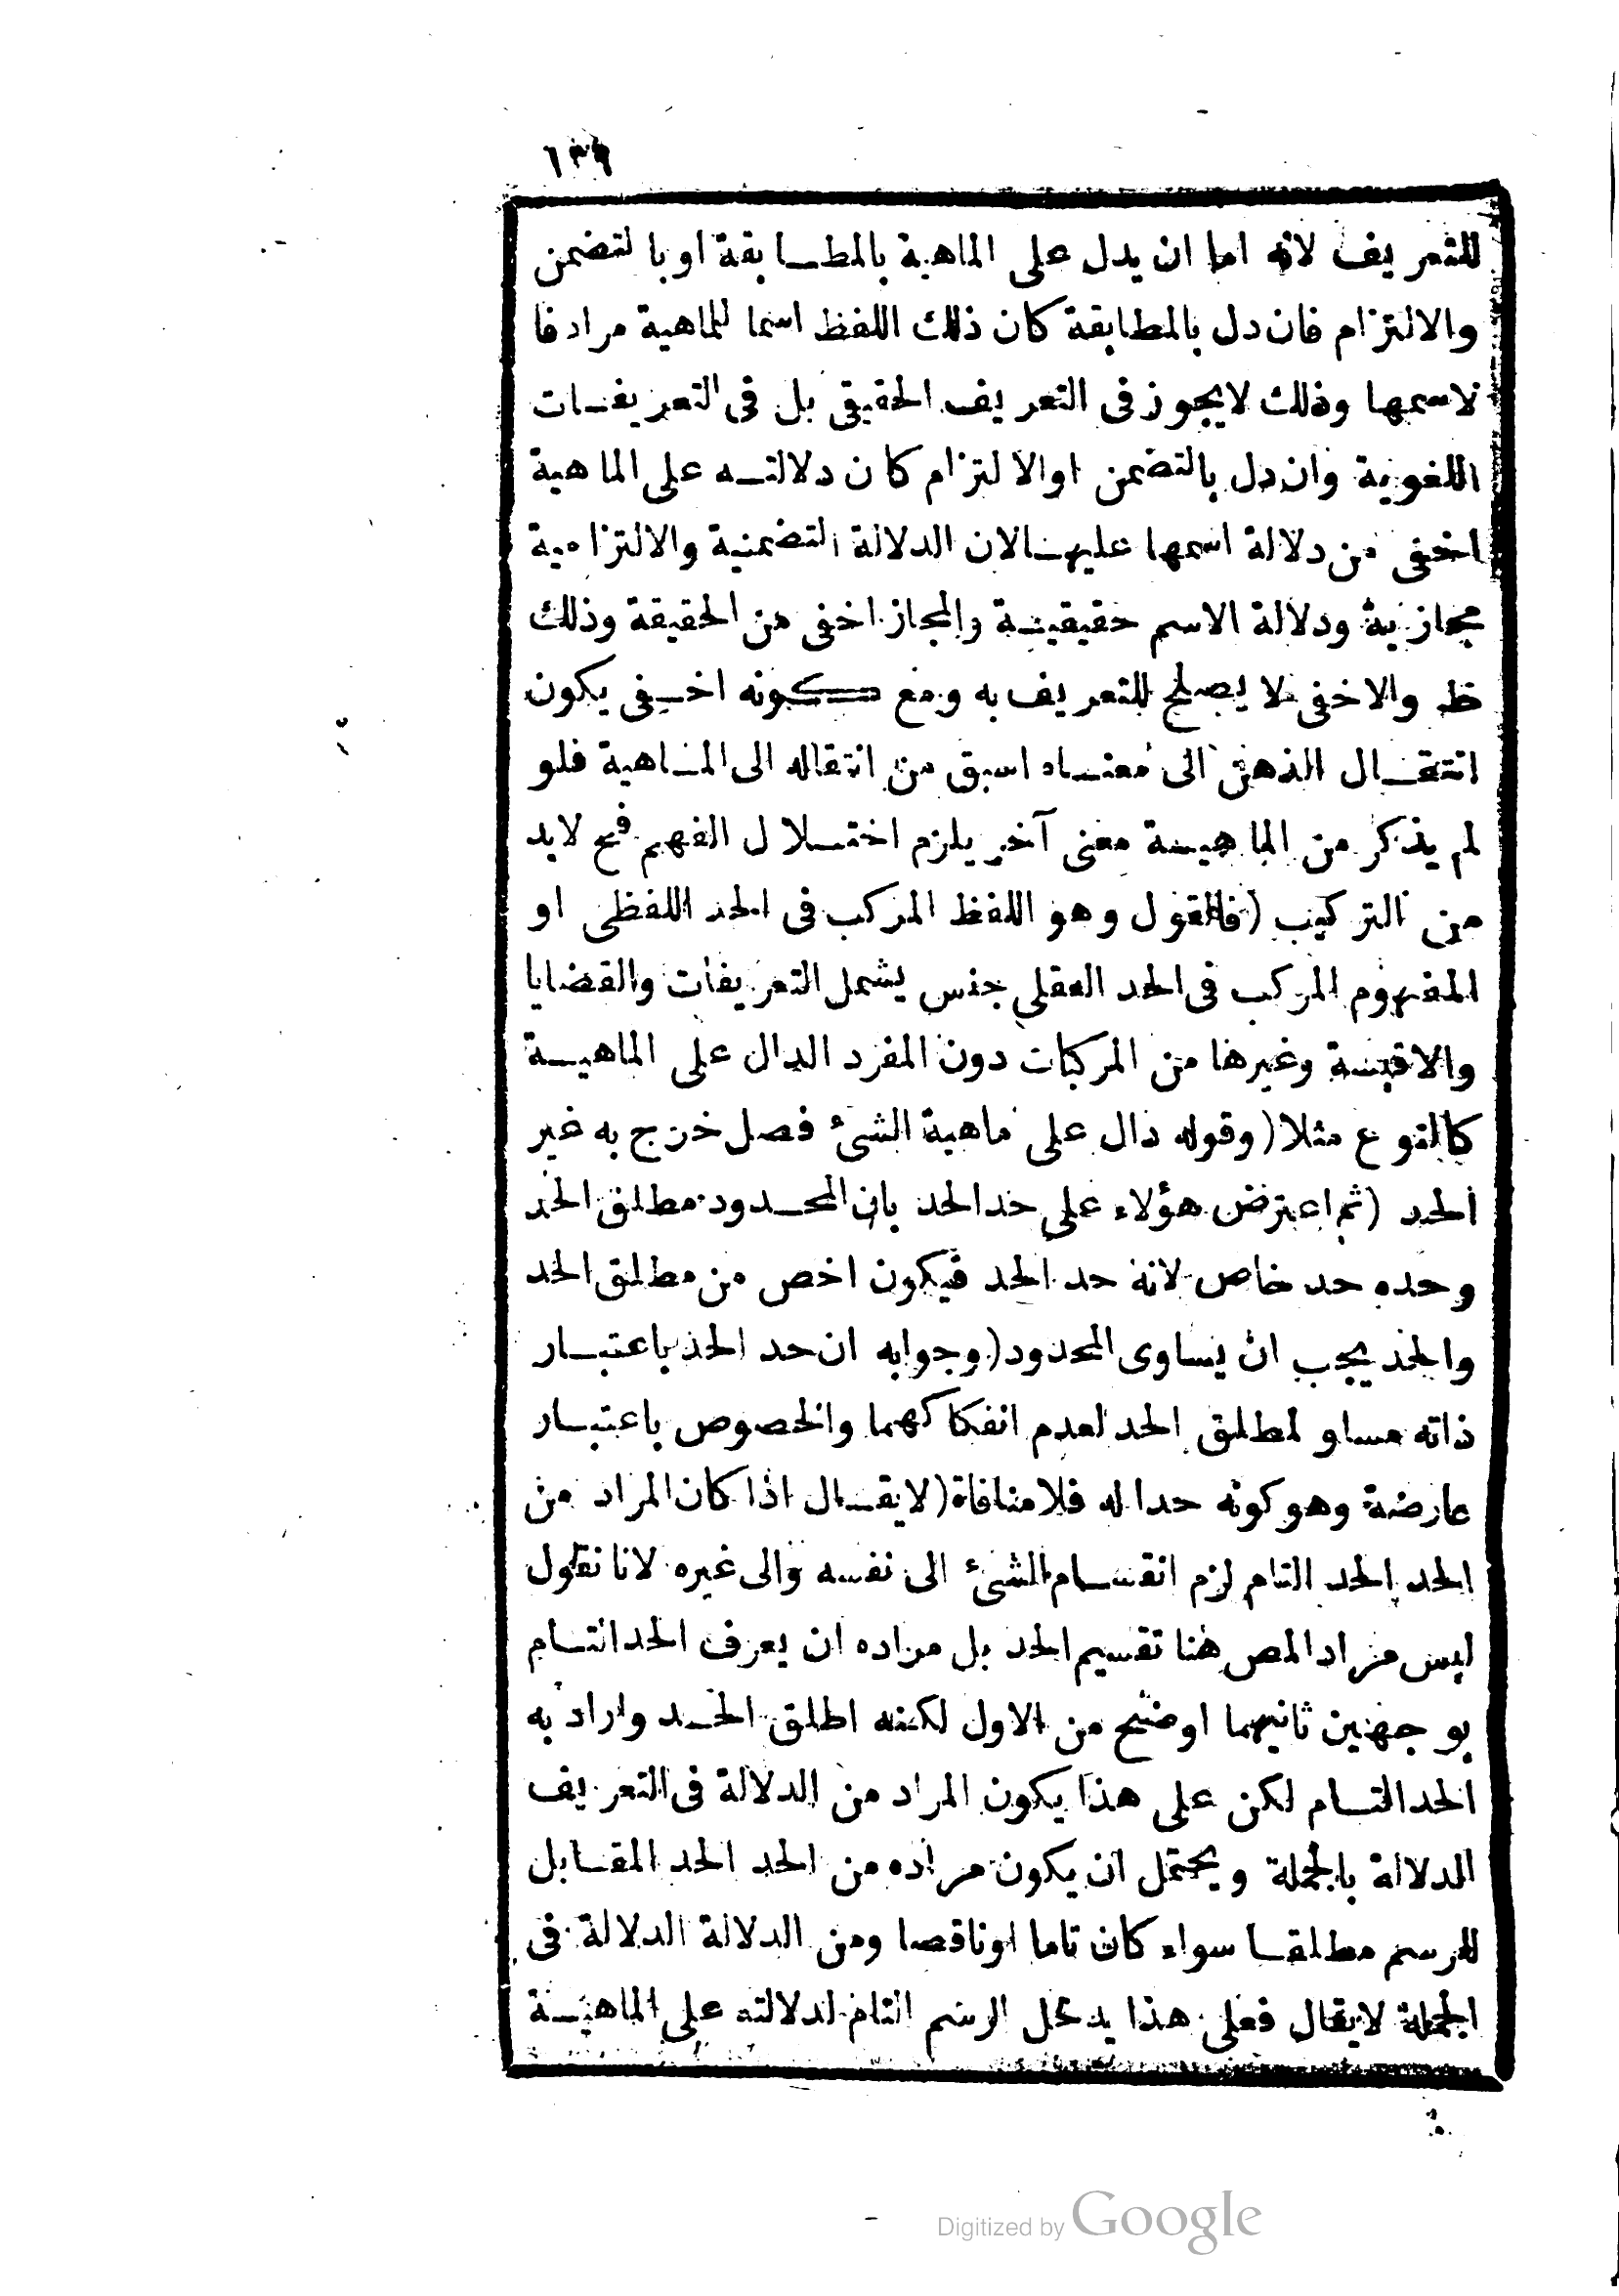 ١٣٦
للتعريف لانه اما ان يدل على الماهية بالمطابقة او بالتضمن
والالتزام فان دل بالمطابقة كان ذلك اللفظ اسما للماهية مرادفا
لاسمها وذلك لا يجوز فى التعريف الحقيقى بل فى التعريفات
اللغوية وان دل بالتضمن او الالتزام كان دلالته على الماهية
اخفى من دلالة اسمها عليها لان الدلالة التضمنية والالتزامية
مجازية ودلالة الاسم حقيقية والمجاز اخفى من الحقيقة وذلك
ظ والاخفى لا يصلح للتعريف به ومع كونه اخفى يكون
انتقال الذهن الى معناه اسبق من انتقاله الى الماهية فلو
لم يذكر من الماهية معنى آخر يلزم اختلال الفهم فح لابد
من التركيب (فالقول وهو اللفظ المركب فى الحد اللفظى او
المفهوم المركب فى الحد العقلى جنس يشمل التعريفات والقضايا
والاقيسة وغيرها من المركبات دون المفرد الدال على الماهية
كالنوع مثلا (وقوله دال على ماهية الشئ فصل خرج به غير
الحد (ثم اعترض هؤلاء على حد الحد بان المحدود مطلق الحد
وحده حد خاص لانه حد الحد فيكون اخص من مطلق الحد
والحد يجب ان يساوى المحدود (وجوابه ان حد الحد باعتبار
ذاته مساو لمطلق الحد لعدم انفكاكهما والخصوص باعتبار
عارضة وهو كونه حدا له فلا منافاة (لا يقال اذا كان المراد من
الحد الحد التام لزم انقسام الشئ الى نفسه والى غيره لانا نقول
ليس مراد المص هنا تقسيم الحد بل مراده ان يعرف الحد التام
بوجهين ثانيهما اوضح من الاول لكنه اطلق الحد واراد به
الحد التام لكن على هذا يكون المراد من الدلالة فى التعريف
الدلالة بالجملة ويحتمل ان يكون مراده من الحد الحد المقابل
للرسم مطلقا سواء كان تاما او ناقصا ومن الدلالة الدلالة فى
الجملة لا يقال فعلى هذا يدخل الرسم التام لدلالته على الماهية
Digitized by Google